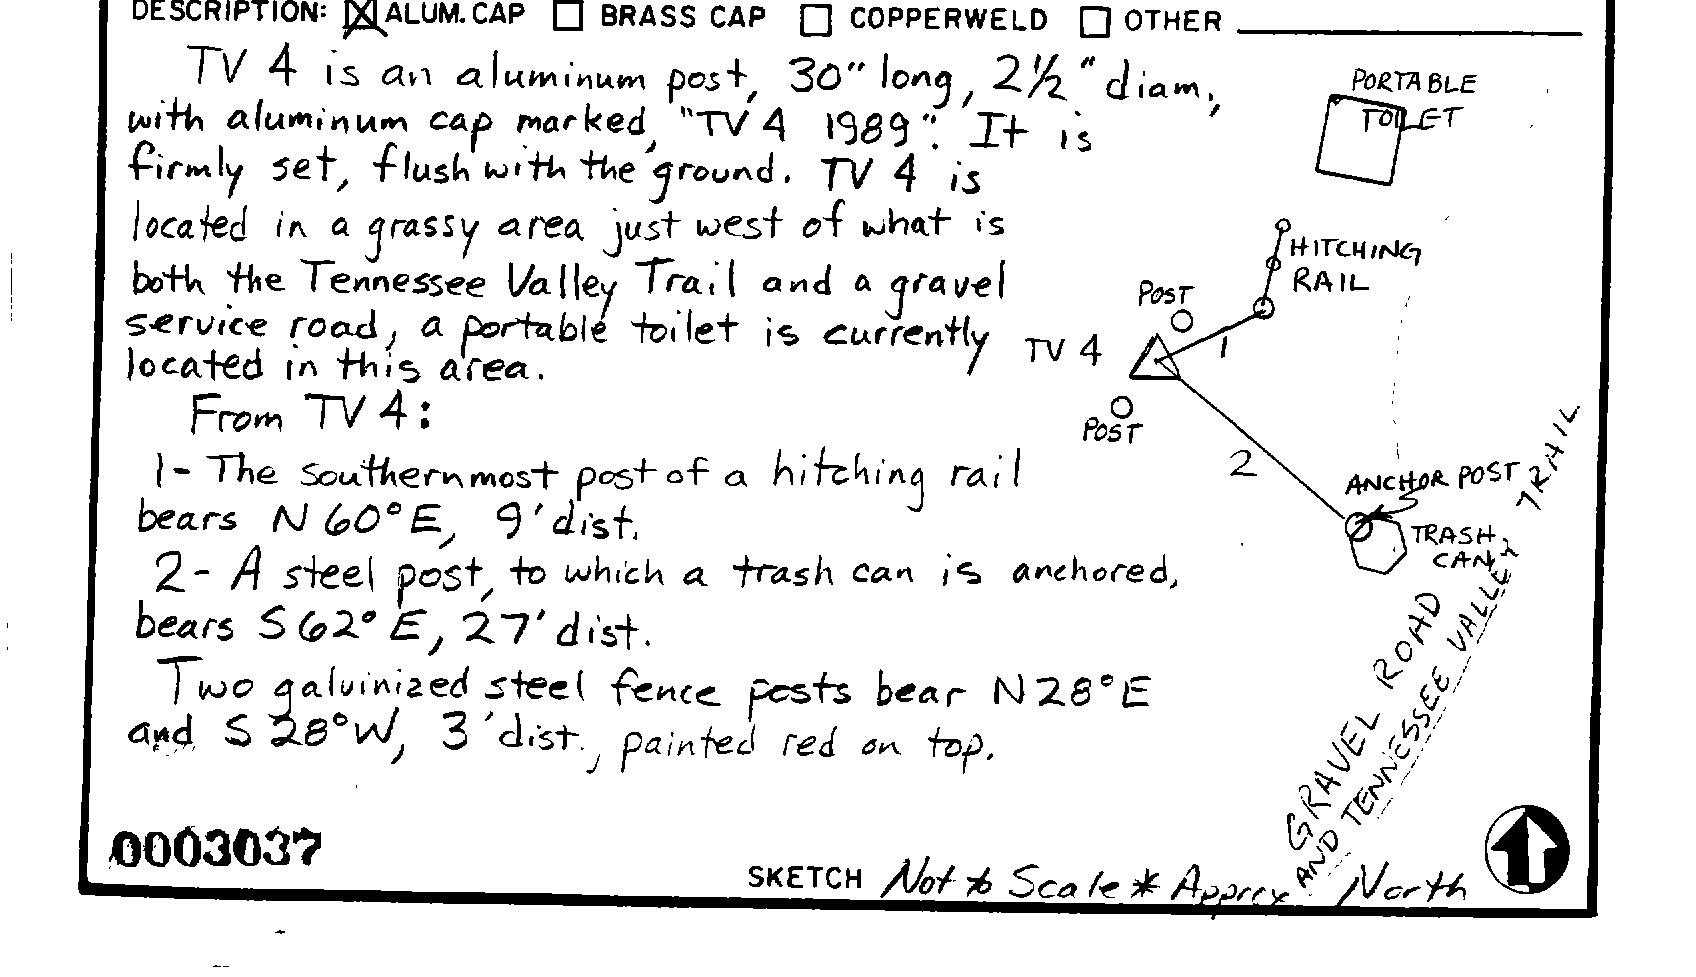 DESCRIPTION: ☒ ALUM. CAP ☐ BRASS CAP ☐ COPPERWELD ☐ OTHER
TV 4 is an aluminum post, 30" long, 2½" diam.,
with aluminum cap marked, "TV 4 1989". It is
firmly set, flush with the ground. TV 4 is
located in a grassy area just west of what is
both the Tennessee Valley Trail and a gravel
service road, a portable toilet is currently
located in this area.
From TV 4:
1- The southernmost post of a hitching rail
bears N 60° E, 9' dist.
2- A steel post, to which a trash can is anchored,
bears S 62° E, 27' dist.
Two galvinized steel fence posts bear N 28° E
and S 28° W, 3' dist., painted red on top.
PORTABLE
TOILET
HITCHING
RAIL
POST
TV 4
1
POST
2
ANCHOR POST
TRASH
CAN
GRAVEL ROAD
AND TENNESSEE VALLEY TRAIL
0003037
SKETCH Not to Scale * Approx North